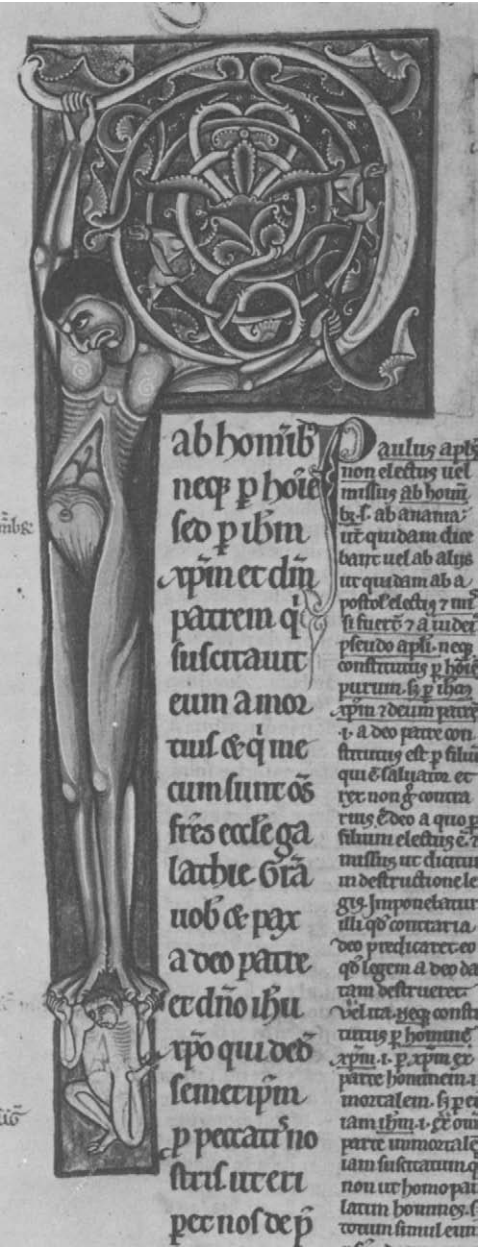 P
ab homib'
neq; p hoie
sed p ihm
xpm et dm
patrem q'
suscitauit
eum a mor
tuis & q' me
cum sunt oms
frēs eccle ga
lathie. Gra
uob' & pax
a deo patre
et dno ihu
xpo qui dedt
semetipm
p peccatis no
stris ut eri
peret nos de p
Paulus apls
non electus uel
missus ab homi
b;. s. ab anania.
ut quidam dice
bant uel ab aliis
ut quidam ab a
postol' electi ⁊
si fuert ⁊ a iudeis
pseudo apli. neq;
constitutus p hoie
purum. s; p ihm
xpm ⁊ deum patre
.i. a deo patre con
stitutus est p filiu
qui ē saluator et
rex non g contra
rius ē deo a quo p
filium electus ē. ⁊
missus ut dicitur
in destructione le
gis. Imponebatur
illi qd contraria
deo predicaret. eo
qd legem a deo da
tam destrueret.
Vel ita. neq; consti
tutus p homine
xpm. i. p. xpm ex
parte hominem
mortalem. s; p
iam ihm. i. ex omi
parte immortale
iam suscitatum
non ut homo pau
latim homines. s
totum simul eum